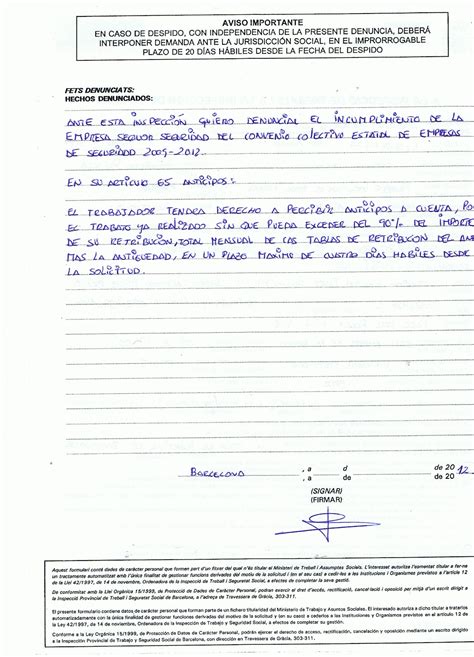 AVISO IMPORTANTE
EN CASO DE DESPIDO, CON INDEPENDENCIA DE LA PRESENTE DENUNCIA, DEBERÁ
INTERPONER DEMANDA ANTE LA JURISDICCIÓN SOCIAL, EN EL IMPRORROGABLE
PLAZO DE 20 DÍAS HÁBILES DESDE LA FECHA DEL DESPIDO
FETS DENUNCIATS:
HECHOS DENUNCIADOS:
ANTE ESTA INSPECCIÓN QUIERO DENUNCIAR EL INCUMPLIMIENTO DE LA
EMPRESA SEGUR SEGURIDAD DEL CONVENIO COLECTIVO ESTATAL DE EMPRESAS
DE SEGURIDAD 2009-2012.
EN SU ARTICULO 65 ANTICIPOS:
EL TRABAJADOR TENDRA DERECHO A PERCIBIR ANTICIPOS A CUENTA, POR
EL TRABAJO YA REALIZADO SIN QUE PUEDA EXCEDER DEL 90% DEL IMPORTE
DE SU RETRIBUCION, TOTAL MENSUAL DE LAS TABLAS DE RETRIBUCION DEL
MAS LA ANTIGUEDAD, EN UN PLAZO MAXIMO DE CUATRO DÍAS HABILES DESDE
LA SOLICITUD.
BARCELONA , a d de 20 12
, a de 20
(SIGNAR)
(FIRMAR)
Aquest formulari conté dades de caràcter personal que formen part d'un fitxer del qual n'és titular el Ministeri de Treball i Assumptes Socials. L'interessat autoritza a fer-ne
un tractament automatitzat amb l'única finalitat de gestionar funcions derivades del motiu de la sol·licitud i (en el seu cas) a cedir-les a les Institucions i Organismes previstos a l'article 12
de la Llei 42/1997, de 14 de novembre, Ordenadora de la Inspecció de Treball i Seguretat Social, a efectes de completar la seva gestió.
De conformitat amb la Llei Orgànica 15/1999, de Protecció de Dades de Caràcter Personal, podran exercir el dret d'accés, rectificació, cancel·lació i oposició per mitjà d'un escrit dirigit a
la Inspecció Provincial de Treball i Seguretat Social de Barcelona, a l'adreça de Travessera de Gràcia, 303-311.
El presente formulario contiene datos de carácter personal que forman parte de un fichero titularidad del Ministerio de Trabajo y Asuntos Sociales. El interesado autoriza a dicho titular a tratarlos
automatizadamente con la única finalidad de gestionar funciones derivadas del motivo de la solicitud y (en su caso) a cederlos a las Instituciones y Organismos previstos en el artículo 12 de
la Ley 42/1997, de 14 de noviembre, Ordenadora de la Inspección de Trabajo y Seguridad Social, a efectos de completar su gestión.
Conforme a la Ley Orgánica 15/1999, de Protección de Datos de Carácter Personal, podrán ejercer el derecho de acceso, rectificación, cancelación y oposición mediante un escrito dirigido
a la Inspección Provincial de Trabajo y Seguridad Social de Barcelona, con dirección en Travessera de Gràcia, 303-311.